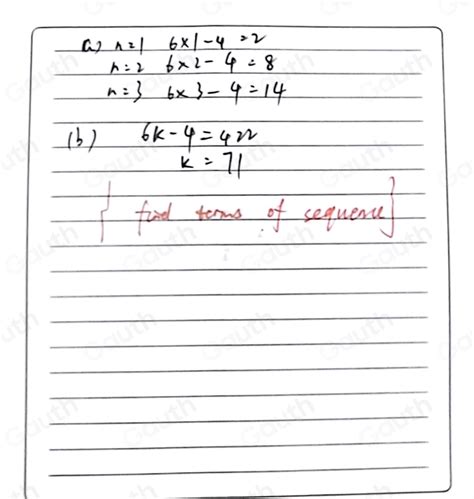 a) n=1 6×1-4=2
n=2 6×2-4=8
n=3 6×3-4=14
(b) 6k-4=422
k=71
{ find terms of sequence }
Gauth